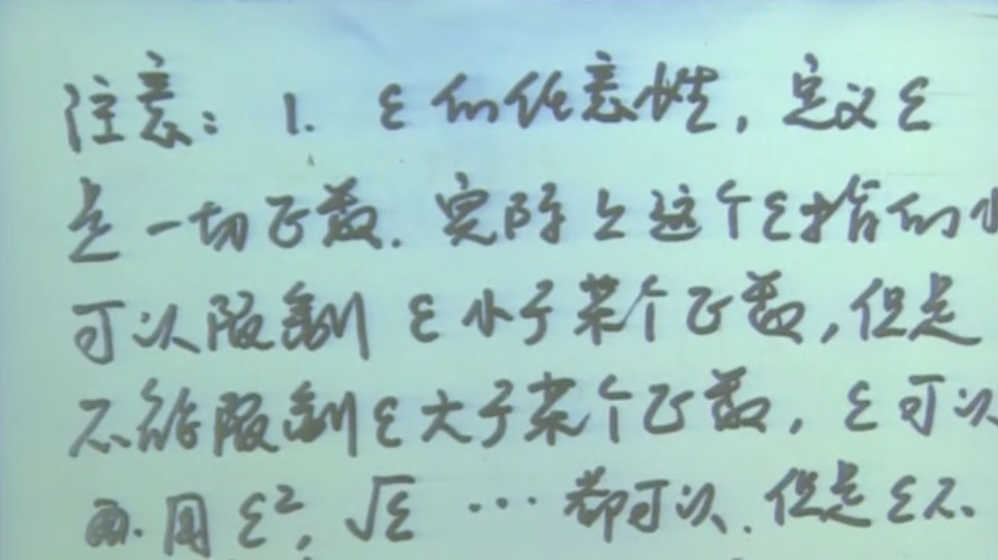 注意: 1. ε的任意性, 定义ε
是一切正数. 实际上这个ε指的小
可以限制 ε小于某个正数, 但是
不能限制ε大于某个正数, ε可以
用 ε², √ε … 都可以. 但是ε不